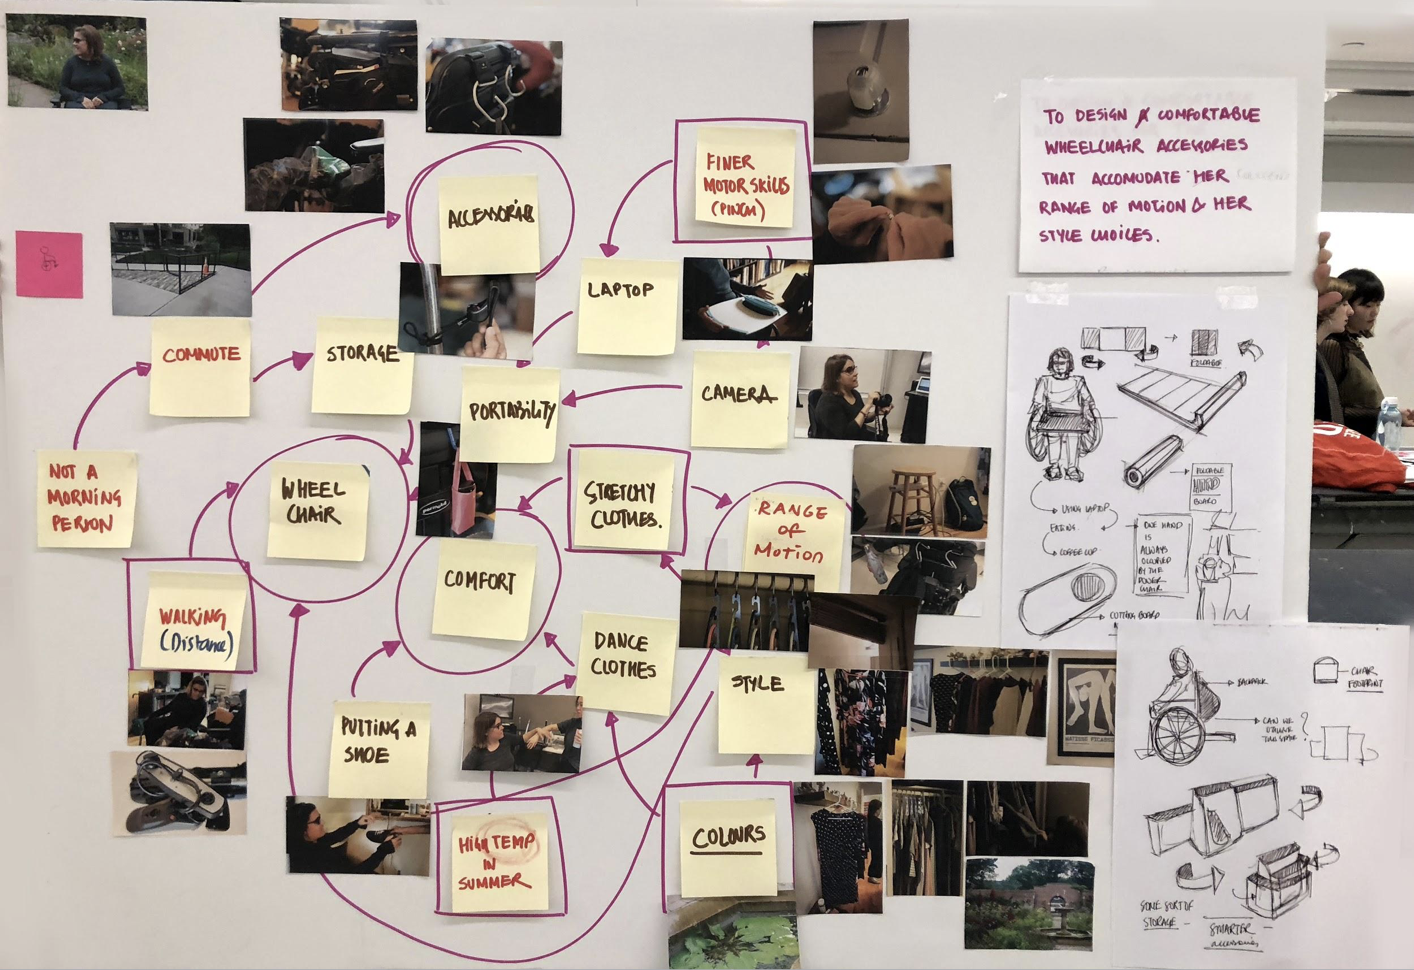 ACCESSORIES
FINER
MOTOR SKILLS
(PINCH)
LAPTOP
COMMUTE
STORAGE
PORTABILITY
CAMERA
NOT A
MORNING
PERSON
WHEEL
CHAIR
STRETCHY
CLOTHES.
RANGE
OF
MOTION
COMFORT
WALKING
(Distance)
DANCE
CLOTHES
STYLE
PUTTING A
SHOE
HIGH TEMP
IN
SUMMER
COLOURS
TO DESIGN A COMFORTABLE
WHEELCHAIR ACCESSORIES
THAT ACCOMUDATE HER
RANGE OF MOTION & HER
STYLE CHOICES.
FOLDABLE
FOLDABLE
BOARD
USING LAPTOP
EATING
COFFEE CUP
ONE HAND
IS
ALWAYS
OCCUPIED
BY THE
POWER
CHAIR
CUTTING BOARD
BACKPACK
CHAIR
FOOTPRINT
CAN WE
UTILISE
THIS SPACE ?
SOME SORT OF
STORAGE -
SMARTER
accessories